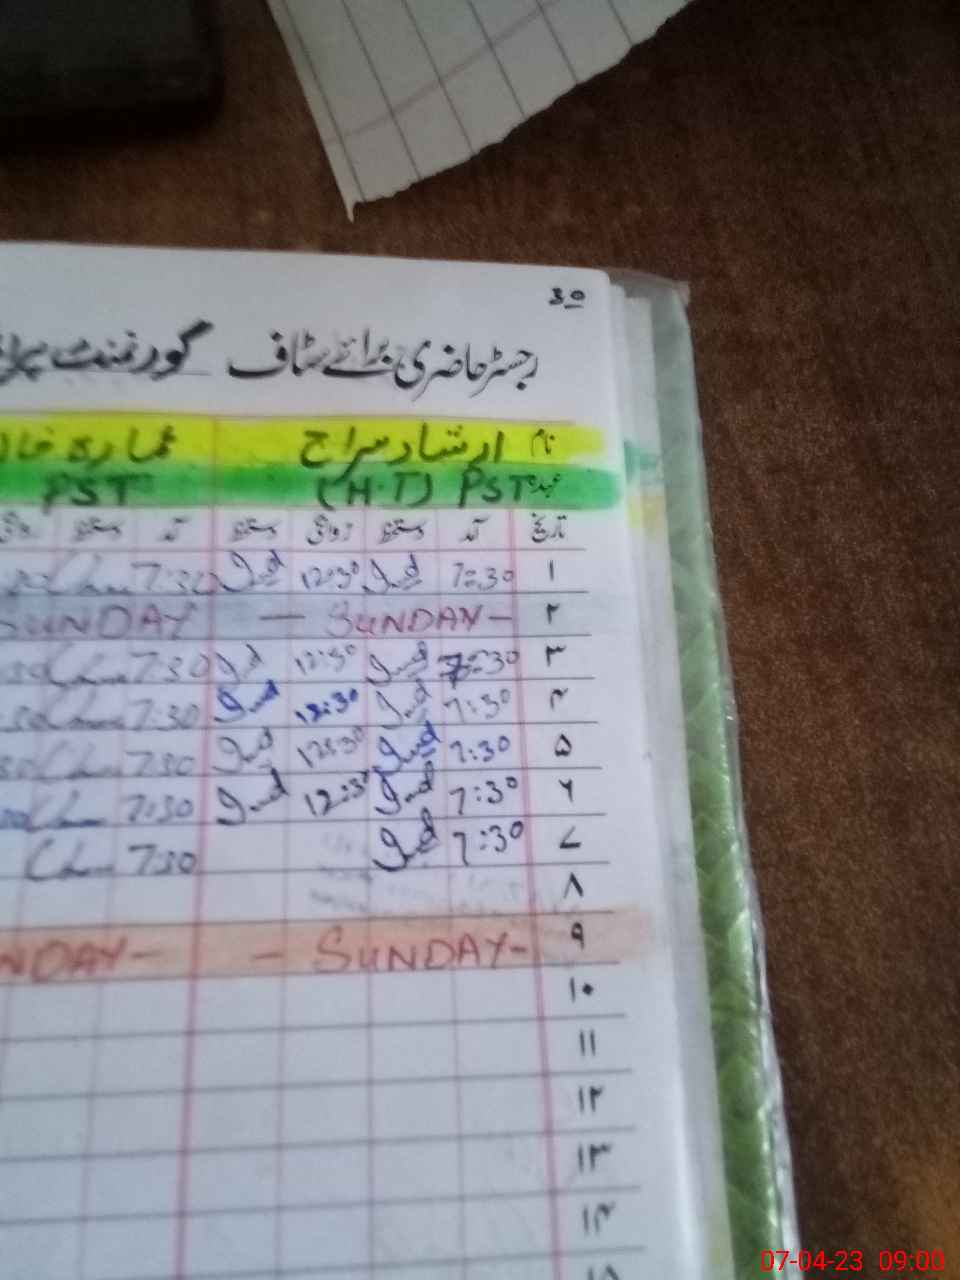 30
رجسٹر حاضری برائے سٹاف گورنمنٹ
نام ارشاد سراج عمارہ
عہدہ PST (H.T) PST
تاریخ آمد دستخط روانگی دستخط آمد دستخط
۱ 7:30 12:30 7:30
۲ - SUNDAY - SUNDAY
۳ 7:30 12:30 7:30
۴ 7:30 12:30 7:30
۵ 7:30 12:30 7:30
۶ 7:30 12:30 7:30
۷ 7:30 7:30
۸
۹ - SUNDAY - NDAY -
۱۰
۱۱
۱۲
۱۳
۱۴
۱۵
07-04-23 09:00